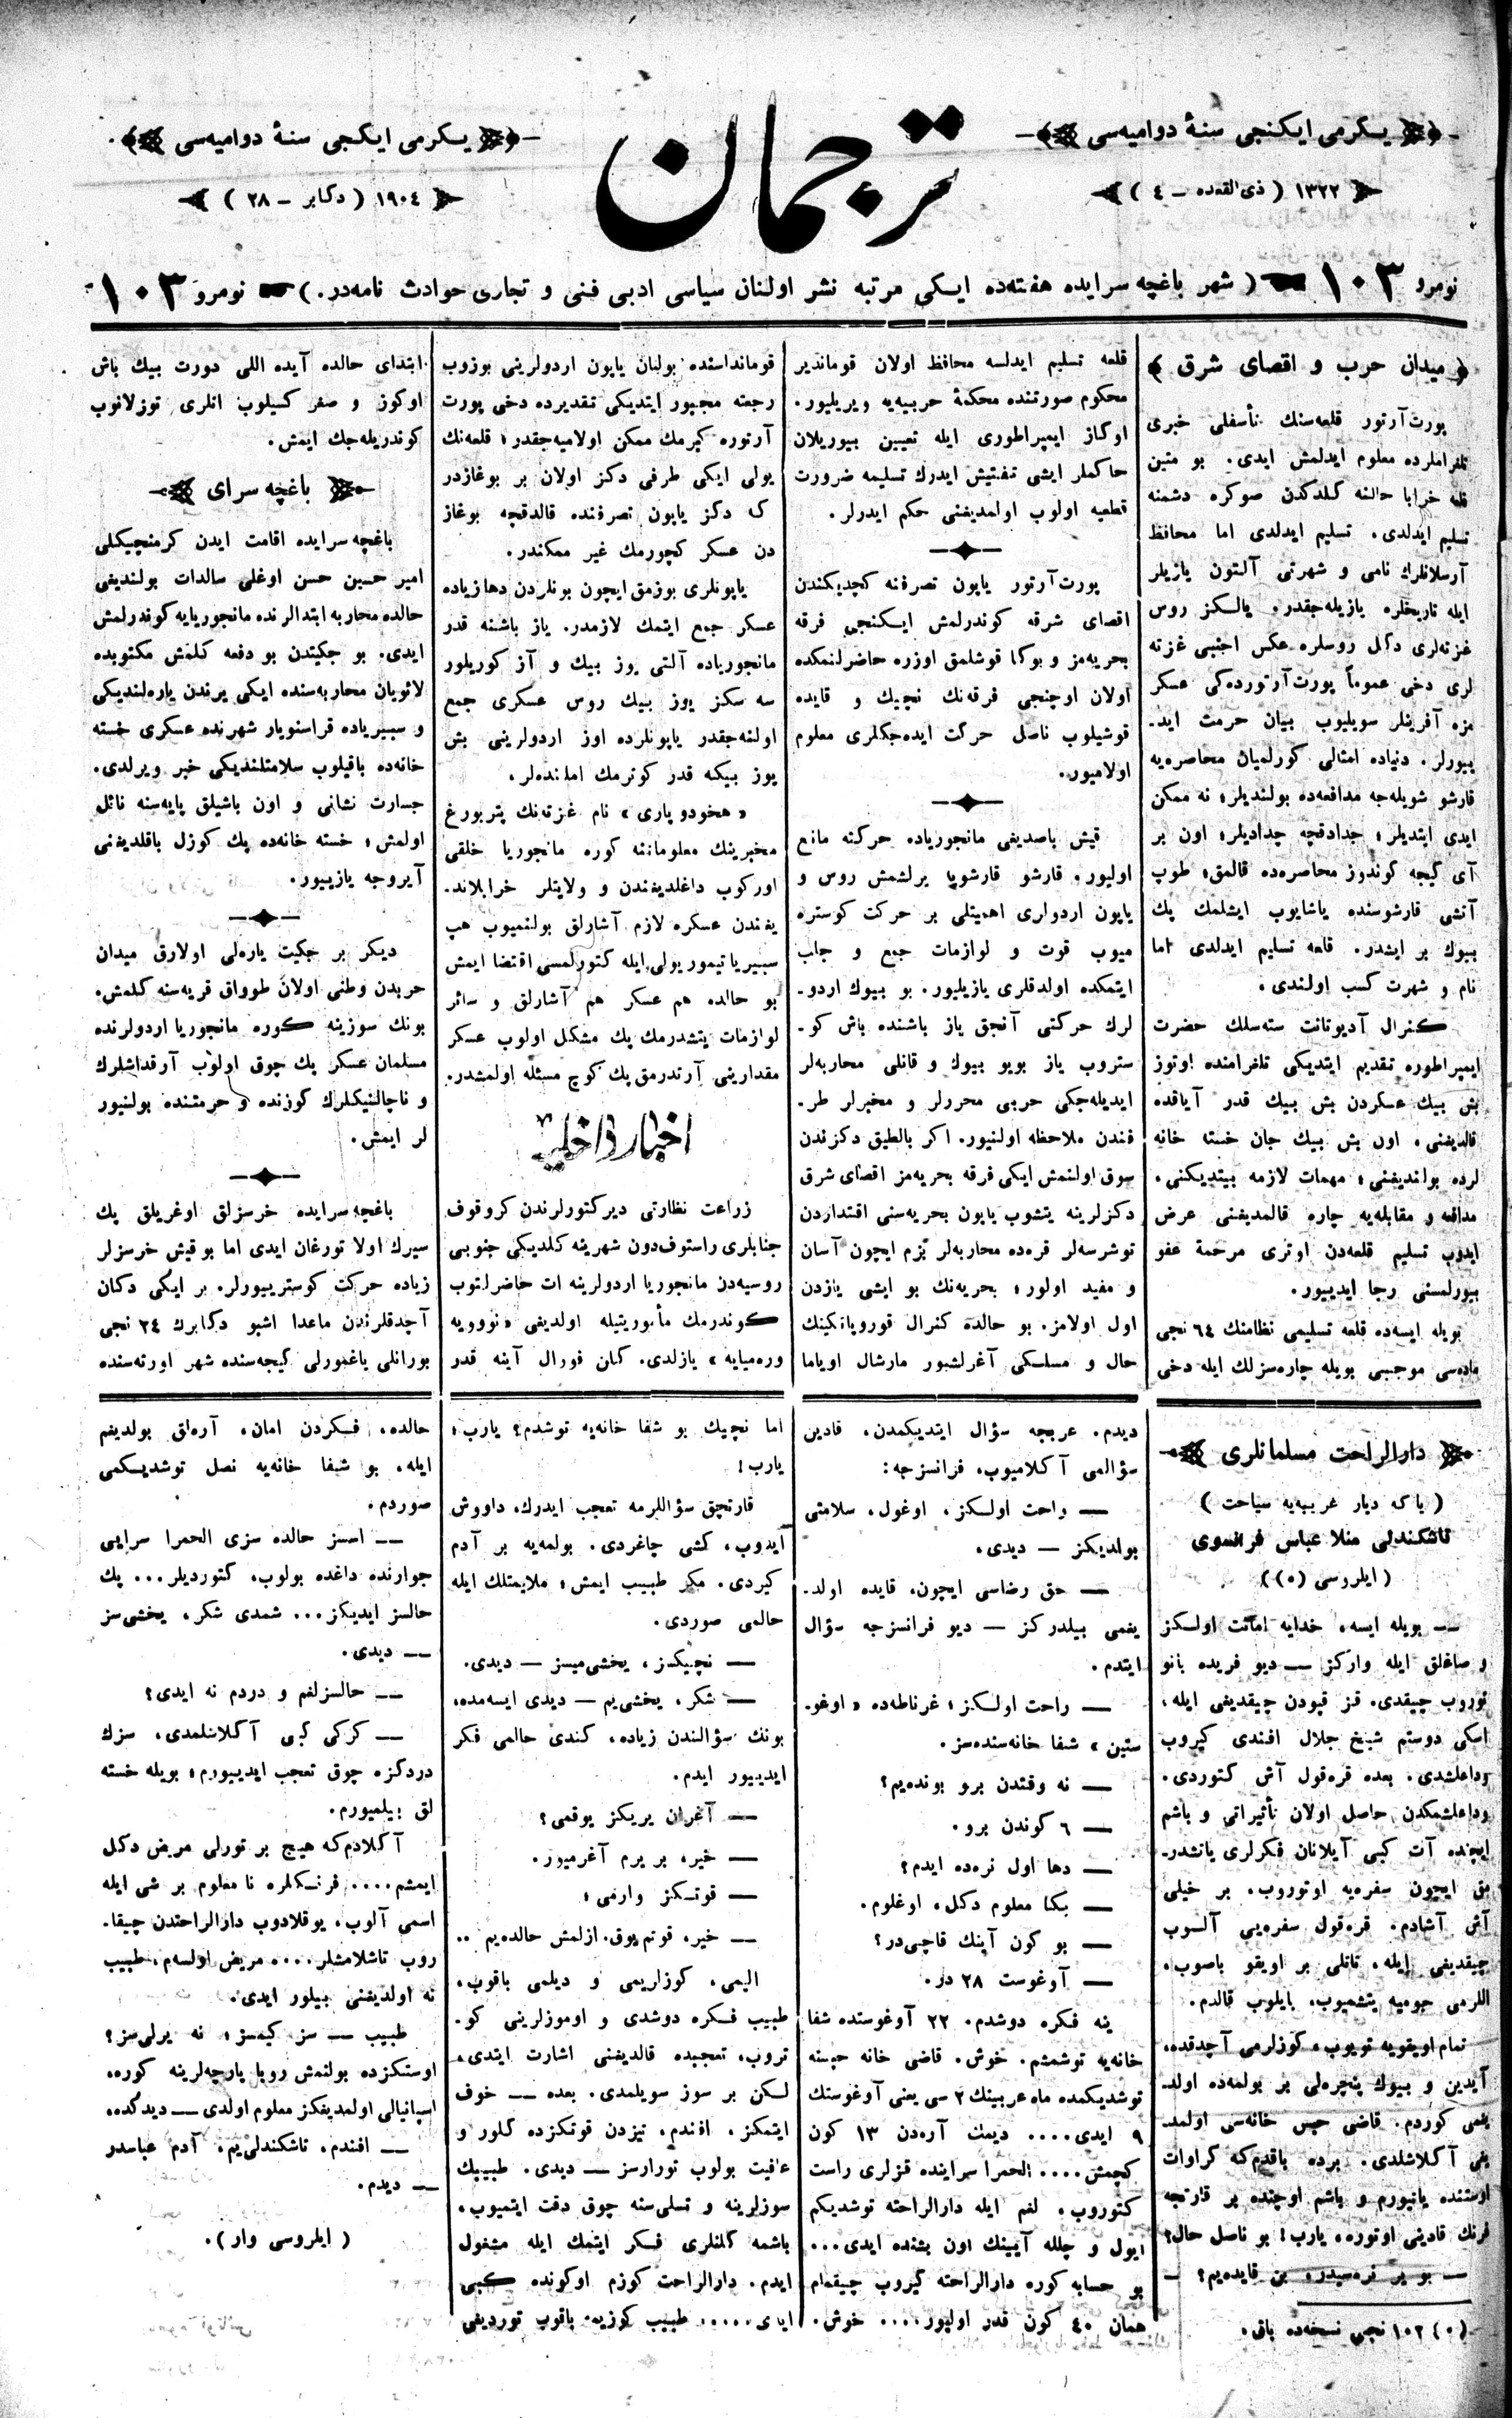 یـکرمی ایکنجی سنهٔ دوامیه‌سی
۱۳۲۲ ( ذی‌القعده – ٤ )
ترجمان
یـکرمی ایکجی سنهٔ دوامیه‌سی
۱۹۰٤ ( دکابر – ۲۸ )
نومرو ۱۰۳ ( شهر باغچه سرایده هفته‌ده ایـکی مرتبه نشر اولنان سیاسی ادبی فنی و تجاری حوادث نامه‌در. ) نومرو ۱۰۳
﴿ میدان حرب و اقصای شرق ﴾
پورت‌آرتور قلعه‌سنك تأسفلی خبری
تلغرافلرده معلوم ایدلمش ایدی. بو متین
قلعه خرابا حالنه كلدكدن صوكره دشمنه
تسلیم ایدلدی. تسلیم ایدلدی اما محافظ
آرسلانلرك نامی و شهرتی آلتون یازیلر
ایله تاریخلره یازیله‌جقدر. یالـكز روس
غزته‌لری دكل روسلره عكس اجنبی غزته
لری دخی عموماً پورت‌آرتورده‌كی عسكر
مزه آفرینلر سویلیوب بیان حرمت ایدـ
ییورلر. دنیاده امثالی كورلمیان محاصره‌یه
قارشو شویله‌جه مدافعه‌ده بولندیلر؛ نه ممكن
ایدی ایتدیلر؛ چدادقچه چدادیلر؛ اون بر
آی كیجه كوندوز محاصره‌ده قالمق، طوپ
آتشی قارشوسنده یاشایوب ایشلمك پك
بیوك بر ایشدر. قلعه تسلیم ایدلدی اما
نام و شهرت كسب اولندی.
كنرال آدیوتانت سته‌سلك حضرت
ایمپراطوره تقدیم ایتدیكی تلغرامنده اوتوز
بش بیك عسكردن بش بیك قدر آیاقده
قالدیغنی. اون بش بیك جان خسته خانه
لرده بولندیغنی؛ مهمات لازمه بیتدیكنی.
مدافعه و مقابله‌یه چاره قالمدیغنی عرض
ایدوب تسلیم قلعه‌دن اوتری مرحمة عفو
بیورلمسنی رجا ایدییور.
بویله ایسه‌ده قلعه تسلیمی نظامنك ٦٤ نجی
ماده‌سی موجبی بویله چاره‌سزلك ایله دخی
قلعه تسلیم ایدلسه محافظ اولان قوماندیر
محكوم صورتنده محكمهٔ حربییه ویریلیور.
اوكاز ایمپراطوری ایله تعیین بیوریلان
حاكملر ایشی تفتیش ایدرك تسلیمه ضرورت
قطعیه اولوب اولمدیغنی حكم ایدرلر.
پورت‌آرتور یاپون تصرفنه كچدیكندن
اقصای شرقه كوندرلمش ایـكنجی فرقه
بحریه‌مز و بوكا قوشلمق اوزره حاضرلنمكده
اولان اوچنجی فرقه‌نك نچیك و قایده
قوشیلوب ناصل حركت ایده‌جكلری معلوم
اولامیور.
قیش باصدیغی مانجوریاده حركته مانع
اولیور. قارشو قارشویا یرلشمش روس و
یاپون اردولری اهمیتلی بر حركت كوستره
میوب قوت و لوازمات جمع و جلب
ایتمكده اولدقلری یازیلیور. بو بیوك اردوـ
لرك حركتی آنجق یاز باشنده باش كوـ
ستروب یاز بویو بیوك و قانلی محاربه‌لر
ایدیله‌جكی حربی محررلر و مخبرلر طرـ
فندن ملاحظه اولنیور. اكر بالطیق دكزندن
سوق اولنمش ایكی فرقه بحریه‌مز اقصای شرق
دكزلرینه یتشوب یاپون بحریه‌سنی اقتداردن
توشرسه‌لر قره‌ده محاربه‌لر بزم ایچون آسان
و مفید اولور؛ بحریه‌نك بو ایشی یازدن
اول اولامز. بو حالده كنرال قوروپاتكینك
حال و مسلـكی آغرلشیور مارشال اویاما
قومانداسنده بولنان یاپون اردولرینی بوزوب
رجعته مجبور ایتدیكی تقدیرده دخی پورت
آرتوره كیرمك ممكن اولامیه‌جقدر؛ قلعه‌نك
یولی ایكی طرفی دكز اولان بر بوغازدر
ك دكز یاپون تصرفنده قالدقچه بوغاز
دن عسكر كچورمك غیر ممكندر.
یاپونلری بوزمق ایچون بونلردن دها زیاده
عسكر جمع ایتمك لازمدر. یاز باشنه قدر
مانجوریاده آلتی یوز بیك و آز كوریلور
سه سكز یوز بیك روس عسكری جمع
اولنه‌جقدر یاپونلرده اوز اردولرینی بش
یوز بیكه قدر كوترمك املنده‌لر.
نام غزته‌نك پتربورغ
مخبرینك معلوماتنه كوره مانجوریا خلقی
اوركوب داغلدیغندن و ولایتلر خرابلاندـ
یغندن عسكره لازم آشارلق بولنمیوب هپ
سیبیریا تیمور یولی ایله كتورلمسی اقتضا ایمش
بو حالده هم عسكر هم آشارلق و سائر
لوازمات یتشدرمك پك مشكل اولوب عسكر
مقدارینی آرتدرمق پك كوچ مسئله اولمشدر.
اخبار داخلیه
زراعت نظارتی دیركتورلرندن كروقوف
جنابلری راستوف‌دون شهرینه كلدیكی جنوبی
روسیه‌دن مانجوریا اردولرینه ات حاضرلتوب
كوندرمك مأموریتیله اولدیغی «نوویه
وره‌میایه» یازلدی. كلن فورال آینه قدر
ابتدای حالده آیده اللی دورت بیك باش
اوكوز و صغر كسیلوب اتلری توزلانوب
كوندریله‌جك ایمش.
باغچه سرای
باغچه سرایده اقامت ایدن كرمنچیكلی
امیر حسین حسن اوغلی سالدات بولندیغی
حالده محاربه ابتدالرنده مانجوریایه كوندرلمش
ایدی. بو جكیتدن بو دفعه كلمش مكتوبده
لائویان محاربه‌سنده ایكی یرندن یاره‌لندیكی
و سیبیریاده قراسنویار شهرنده عسكری خسته
خانه‌ده باقیلوب سلامتلندیكی خبر ویرلدی.
جسارت نشانی و اون باشیلق پایه‌سنه نائل
اولمش؛ خسته خانه‌ده پك كوزل باقلدیغنی
آیروجه یازییور.
دیكر بر جكیت یاره‌لی اولارق میدان
حربدن وطنی اولان طوواق قریه‌سنه كلمش.
بونك سوزینه كوره مانجوریا اردولرنده
مسلمان عسكر پك چوق اولوب آرقداشلرك
و ناچالنیكلرك كوزنده و حرمتنده بولنیور
لر ایمش.
باغچه سرایده خرسزلق اوغریلق پك
سیرك اولا تورغان ایدی اما بو قیش خرسزلر
زیاده حركت كوسترییورلر. بر ایكی دكان
آچدقلرندن ماعدا اشبو دكابرك ۲٤ نجی
بورانلی یاغمورلی كیجه‌سنده شهر اورته‌سنده
دارالراحت مسلمانلری
( یاكه دیار غریبه‌یه سیاحت )
تاشكندلی منلا عباس فرانسوی
( ایلروسی (٥))
— بویله ایسه، خدایه امانت اولـكز
و صاغلق ایله واركز — دیو فریده بانو
توروب چیقدی. قز قپودن چیقدیغی ایله،
اسكی دوستم شیخ جلال افندی كیروب
وداعلشدی. بعده قره‌قول آش كتوردی.
وداعلشمكدن حاصل اولان تأثیراتی و باشم
ایچنده آت كبی آیلانان فكرلری یاتشدرـ
مق ایچون سفره‌یه اوتوروب. بر خیلی
آش آشادم. قره‌قول سفره‌یی آلـوب
چیقدیغی ایله، تاتلی بر اویقو باصوب.
اللرمی جومیه یتشمیوب، یایلوب قالدم.
تمام اویقویه تویوب، كوزلرمی آچدقده.
آیدین و بیوك پنجره‌لی بر بولمه‌ده اولدـ
یغمی كوردم. قاضی حبس خانه‌سی اولمدـ
یغی آكلاشلدی. برده باقدم‌كه كراوات
اوستنده یاتیورم و باشم اوچنده بر قارتچه
فرنك قادینی اوتوره. یارب! بو ناصل حال؟
— بو یر نره‌سیدر، بن قایده‌یم؟ —
(٠) ۱۰۲ نجی نسخه‌ده باق.
دیدم. عربجه سؤال ایتدیكمدن، قادین
سؤالمی آكلامیوب، فرانسزجه:
— راحت اولـكز، اوغول، سلامتی
بولدیكز — دیدی.
— حق رضاسی ایچون، قایده اولدـ
یغمی بیلدركز — دیو فرانسزجه سؤال
ایتدم.
— راحت اولـكز؛ غرناطه‌ده «اوغوـ
ستین» شفا خانه‌سنده‌سز.
— نه وقتدن برو بونده‌یم؟
— ٦ كوندن برو.
— دها اول نره‌ده ایدم؟
— بكا معلوم دكل، اوغلوم.
— بو كون آینك قاچی‌در؟
— آوغوست ۲۸ در.
ینه فكره دوشدم. ۲۲ آوغوستده شفا
خانه‌یه توشمشم. خوش. قاضی خانه حبسنه
توشدیكمده ماه عربینك ۲ سی یعنی آوغوستك
۹ ایدی.... دیمك آره‌دن ۱۳ كون
كچمش.... الحمرا سراینده قزلری راست
كتوروب. لغم ایله دارالراحته توشدیكم
ایول و چلله آیینك اون بشنده ایدی...
بو حسابه كوره دارالراحته كیروب چیقمام
همان ٤۰ كون قدر اولیور.... خوش.
اما نچیك بو شفا خانه‌یه توشدم؟ یارب،
یارب!
قارتچق سؤاللرمه تعجب ایدرك، داووش
ایدوب، كشی چاغردی. بولمه‌یه بر آدم
كیردی. مكر طبیب ایمش؛ ملایمتلك ایله
حالمی صوردی.
— نچیكسز، یخشی‌میسز — دیدی.
— شكر، یخشی‌یم — دیدی ایسه‌مده،
بونك سؤالندن زیاده، كندی حالمی فكر
ایدییور ایدم.
— آغران یریكز یوقمی؟
— خیر، بر یرم آغرمیور.
— قوتـكز وارمی؛
— خیر، قوتم یوق. ازلمش حالده‌یم ..
الیمی، كوزلریمی و دیلمی باقوب،
طبیب فـكره دوشدی و اوموزلرینی كوـ
تروب، تعجبده قالدیغنی اشارت ایتدی،
لـكن بر سوز سویلمدی. بعده — خوف
ایتمكز، افندم، تیزدن قوتكزده كلور و
عافیت بولوب تورارسز — دیدی. طبیبك
سوزلرینه و تسلی‌سنه چوق دقت ایتمیوب،
باشمه كلنلری فـكر ایتمك ایله مشغول
ایدم. دارالراحت كوزم اوكونده كبی
ایدی..... طبیب كوزیمه باقوب توردیغی
حالده، فـكردن امان، آره‌لق بولدیغم
ایله، بو شفا خانه‌یه نصل توشدیـكمی
صوردم.
— اسسز حالده سزی الحمرا سرایی
جوارنده داغده بولوب، كتوردیلر... پك
حالسز ایدیكز... شمدی شكر، یخشی‌سز
— دیدی.
— حالسزلغم و دردم نه ایدی؟
— كركی كبی آكلاشلمدی، سزك
دردكزه چوق تعجب ایدییورم؛ بویله خسته
لق بیلمیورم.
آكلادم‌كه هیچ بر تورلی مریض دكل
ایمشم.... فرنـكلره نا معلوم بر شی ایله
اسمی آلوب، یوقلادوب دارالراحتدن چیقاـ
روب تاشلامشلر.... مریض اولسه‌م، طبیب
نه اولدیغنی بیلور ایدی.
طبیب — سز كیمسز؛ نه یرلی‌سز؟
اوستكزده بولنمش روبا پارچه‌لرینه كوره،
اسپانیالی اولمدیغكز معلوم اولدی — دیدكده،
— افندم، تاشكندلی‌یم، آدم عباسدر
— دیدم.
( ایلروسی وار ).